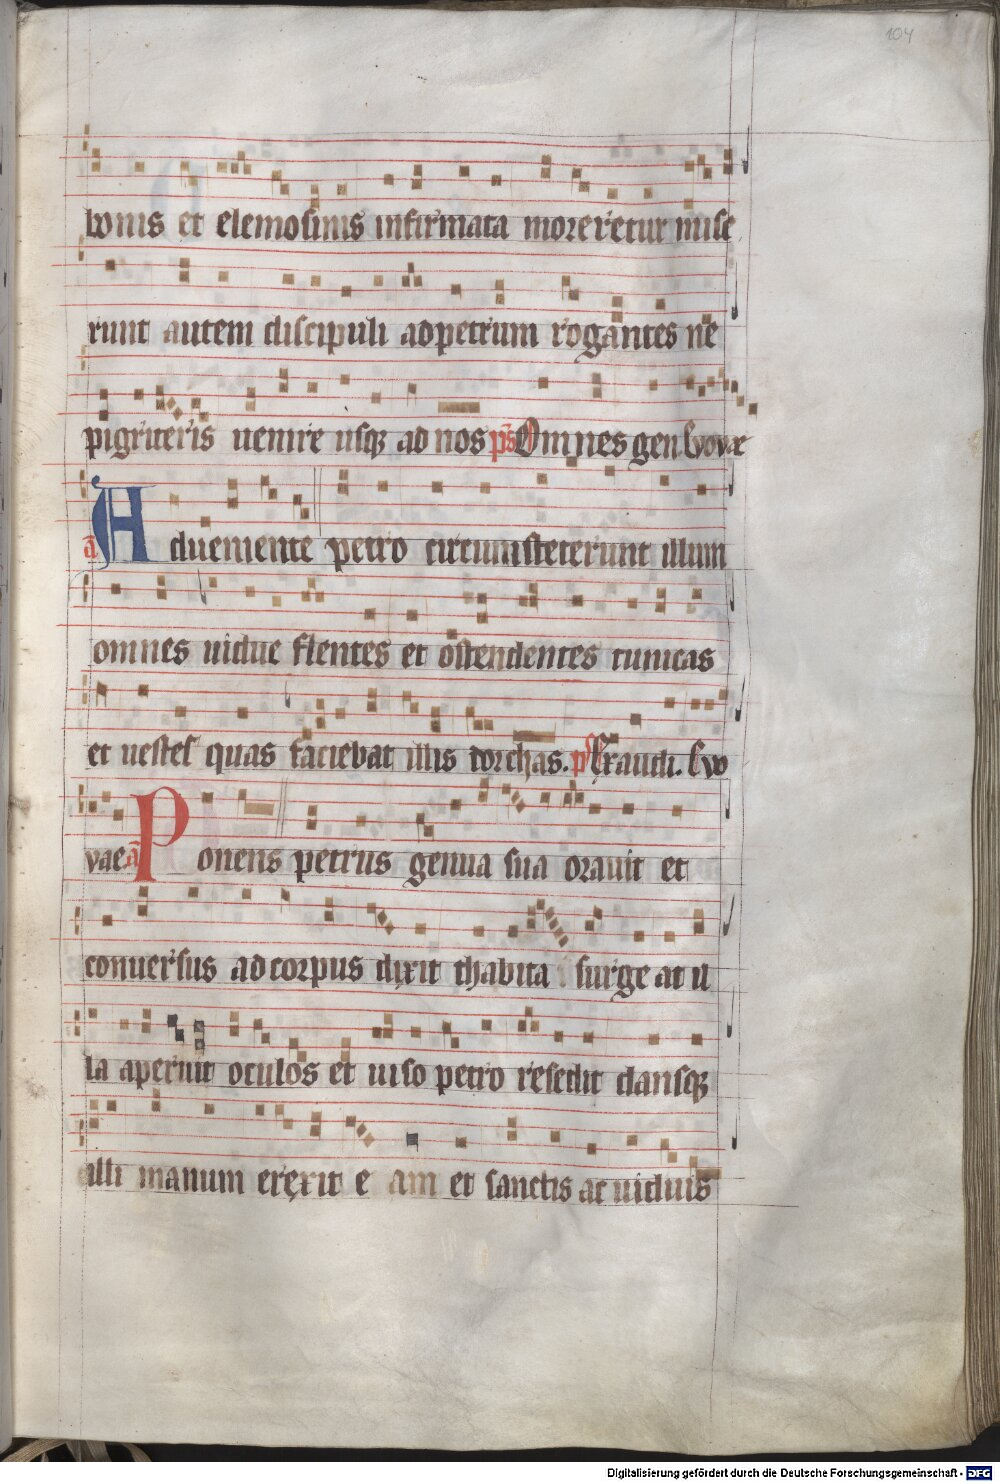 104
bonis et elemosinis infirmata moreretur mise
runt autem discipuli ad petrum rogantes ne
pigriteris uenire usq; ad nos ps Omnes gen. Evovae
a Adueniente petro circumsteterunt illum
omnes uidue flentes et ostendentes tunicas
et uestes quas faciebat illis dorchas. ps Exaudi. Evo
vae a Ponens petrus genua sua orauit et
conuersus ad corpus dixit thabita surge at il
la aperuit oculos et uiso petro resedit dansq;
illi manum erexit e am et sanctis ac uiduis
Digitalisierung gefördert durch die Deutsche Forschungsgemeinschaft - DFG